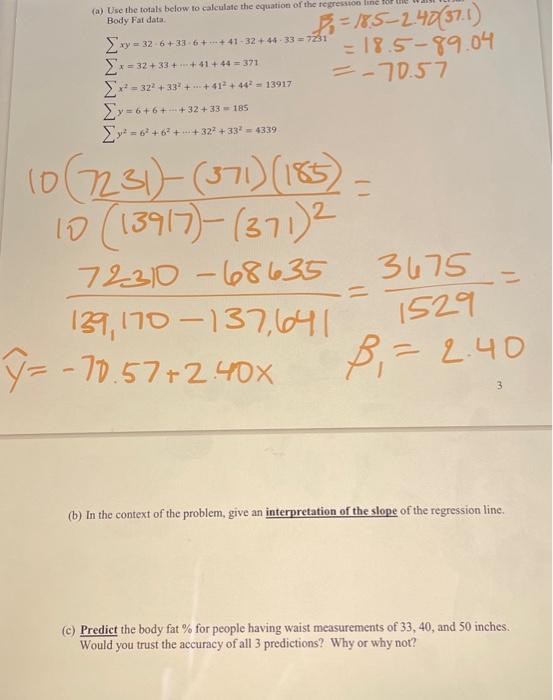 (a) Use the totals below to calculate the equation of the regression line for the waist versus
Body Fat data.
∑xy = 32 · 6 + 33 · 6 + ··· + 41 · 32 + 44 · 33 = 7231
∑x = 32 + 33 + ··· + 41 + 44 = 371
∑x² = 32² + 33² + ··· + 41² + 44² = 13917
∑y = 6 + 6 + ··· + 32 + 33 = 185
∑y² = 6² + 6² + ··· + 32² + 33² = 4339
β₀ = 18.5 - 2.40(37.1)
= 18.5 - 89.04
= -70.57
10(7231) - (371)(185) =
10(13917) - (371)²
72310 - 68635 = 3675 =
139,170 - 137,641 1529
ŷ = -70.57 + 2.40x β₁ = 2.40
3
(b) In the context of the problem, give an interpretation of the slope of the regression line.
(c) Predict the body fat % for people having waist measurements of 33, 40, and 50 inches.
Would you trust the accuracy of all 3 predictions? Why or why not?